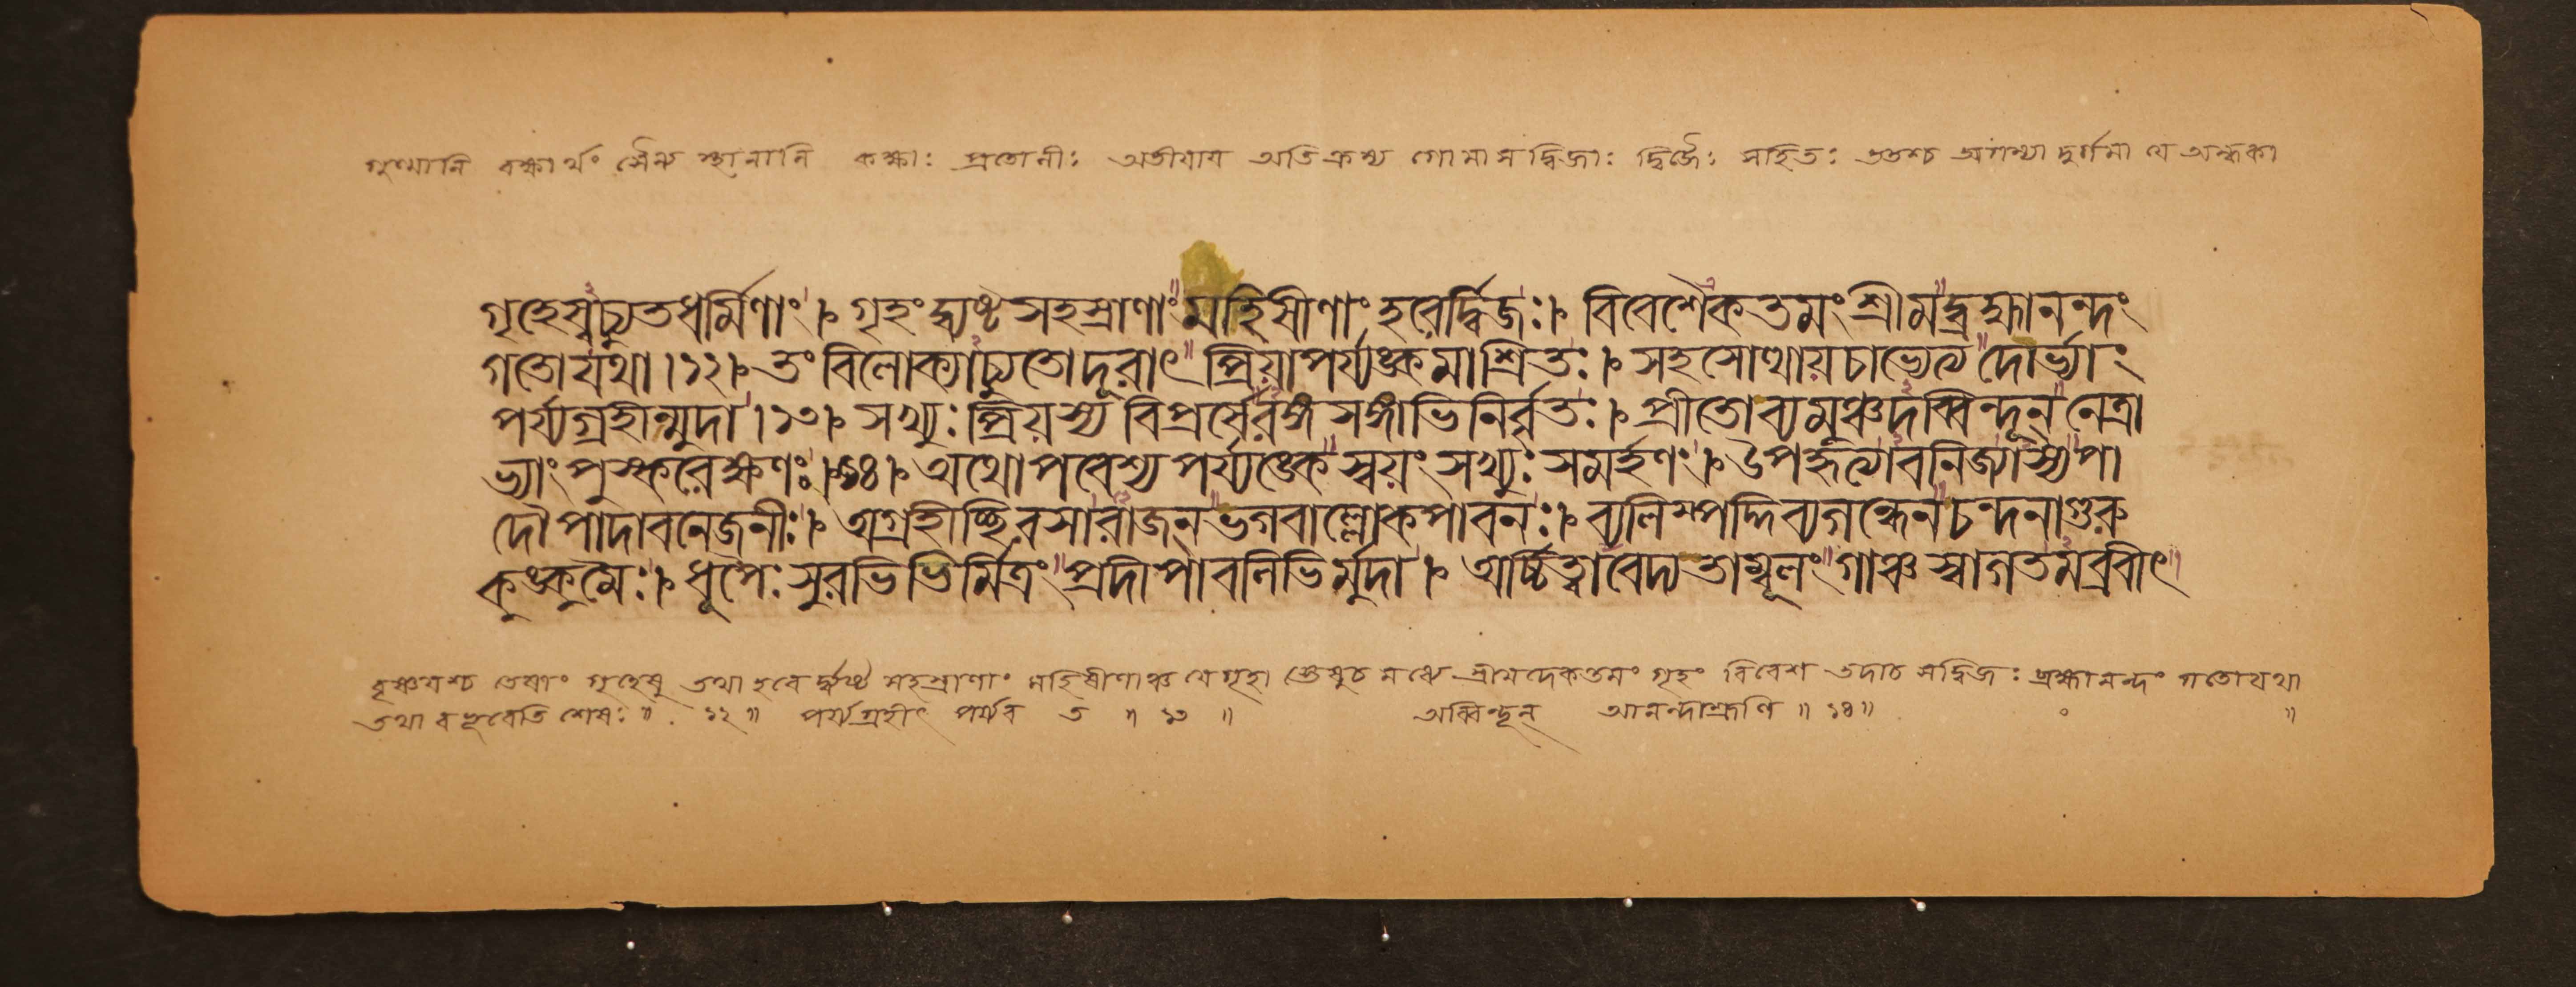 গুল্মানি রক্ষার্থং সৈন্য স্থানানি কক্ষাঃ প্রতোলীঃ অতীযায অতিক্রম্য গোমাসদ্বিজঃ দ্বিজৈঃ সহিতঃ ততশ্চ অগম্যা দুর্গমা যে অন্ধকা
গৃহেষ্বচ্যুতধর্মিণাং। গৃহং দ্ব্যষ্টসহস্রাণাং মহিষীণাং হরের্দ্বিজঃ। বিবেশৈকতমং শ্রীমদ্ব্রহ্মানন্দং
গতোযথা।১২। তং বিলোক্যাচ্যুতোদূরাৎ প্রিয়াপর্য্যঙ্কমাশ্রিতঃ। সহসোত্থায়চাভ্যেত্য দোর্ভ্যাং
পর্য্যগ্রহীন্মুদা।১৩। সখ্যুঃ প্রিয়স্য বিপ্রর্ষেরঙ্গসঙ্গাভিনির্বৃতঃ। প্রীতোব্যমুঞ্চদব্বিন্দূন্ নেত্রা
ভ্যাং পুস্করেক্ষণঃ।১৪। অথোপবেশ্য পর্য্যঙ্কে স্বয়ং সখ্যুঃ সমর্হণং। উপহৃত্যাবনিজ্যাস্য পা
দৌ পাদাবনেজনীঃ। অগ্রহীচ্ছিরসারাজন্ ভগবাল্লোকপাবনঃ। ব্যলিম্পদ্দিব্যগন্ধেন চন্দনাগুরু
কুঙ্কুমৈঃ। ধূপৈঃ সুরভিভির্মিত্রং প্রদীপাবলিভির্মুদা। অর্চ্চিত্বাবেদ্য তাম্বূলং গাঞ্চ স্বাগতমব্রবীৎ
বৃষ্ণযশ্চ তেষাং গৃহেষু তথা হরে র্দ্ব্যষ্ট সহস্রাণাং মহিষীণাঞ্চ যে গৃহা স্তেষুচ মধ্যে শ্রীমদেকতমং গৃহং বিবেশ তদাচ সদ্বিজঃ ব্রহ্মানন্দং গতোযথা
তথা বভূবেতি শেষঃ॥ ১২॥ পর্য্যগ্রহীৎ ॥ ১৩॥ অব্বিন্দূন্ আনন্দাশ্রূণি॥ ১৪॥